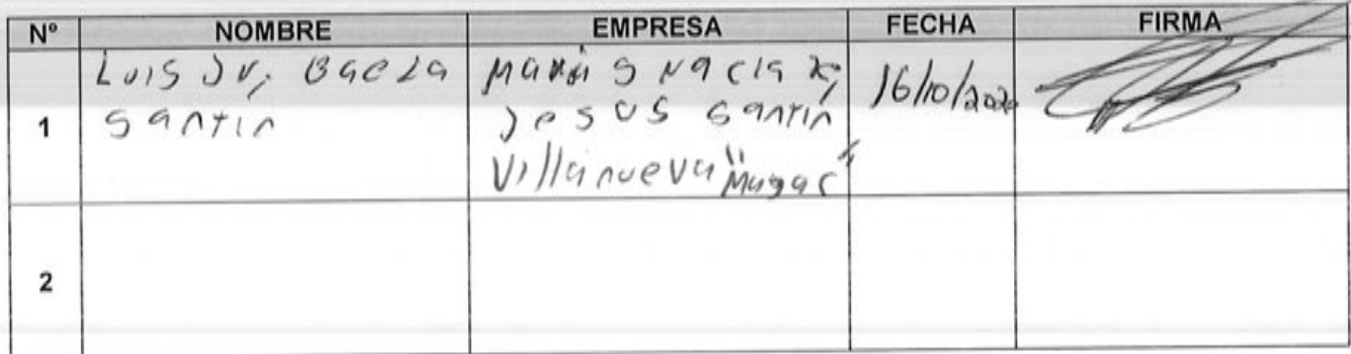 Nº NOMBRE EMPRESA FECHA FIRMA
1
Luis Baeza
Santin
Jesus Santin
Villanueva "Magac"
16/10/2020
2